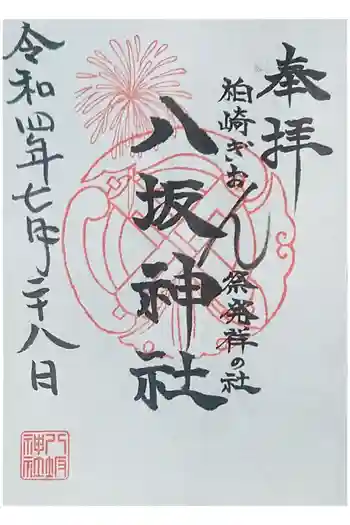 奉拝
柏崎ぎおん祭発祥の社
八坂神社
令和四年七月二十八日
八坂神社